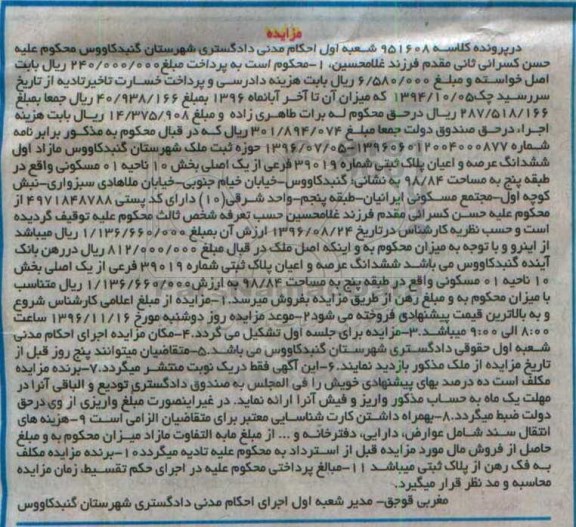 مزایده
درپرونده کلاسه ۹۵۱۶۰۸ شعبه اول احکام مدنی دادگستری شهرستان گنبدکاووس محکوم علیه
حسن کسرائی ثانی مقدم فرزند غلامحسین، ۱-محکوم است به پرداخت مبلغ ۲۴۰/۰۰۰/۰۰۰ ریال بابت
اصل خواسته و مبلغ ۶/۵۸۰/۰۰۰ ریال بابت هزینه دادرسی و پرداخت خسارت تاخیرتادیه از تاریخ
سررسید چک ۱۳۹۴/۱۰/۰۵ که میزان آن تا آخر آبانماه ۱۳۹۶ بمبلغ ۴۰/۹۳۸/۱۶۶ ریال جمعا بمبلغ
۲۸۷/۵۱۸/۱۶۶ ریال درحق محکوم له برات طاهری زاده و مبلغ ۱۴/۳۷۵/۹۰۸ ریال بابت هزینه
اجراء درحق صندوق دولت جمعا مبلغ ۳۰۱/۸۹۴/۰۷۴ ریال که در قبال محکوم به مذکور برابر نامه
شماره ۱۳۹۶۰۶۰۱۲۰۰۴۰۰۰۸۷۷-۱۳۹۶/۰۷/۰۵ حوزه ثبت ملک شهرستان گنبدکاووس مازاد اول
ششدانگ عرصه و اعیان پلاک ثبتی شماره ۳۹۰۱۹ فرعی از یک اصلی بخش ۱۰ ناحیه ۰۱ مسکونی واقع در
طبقه پنج به مساحت ۹۸/۸۴ به نشانی: گنبدکاووس-خیابان خیام جنوبی-خیابان ملاهادی سبزواری-نبش
کوچه اول-مجتمع مسکونی ایرانیان-طبقه پنجم-واحد شرقی(۱۰) دارای کد پستی ۴۹۷۱۸۴۸۷۸۸ از
محکوم علیه حسن کسرائی مقدم فرزند غلامحسین حسب تعرفه شخص ثالث محکوم علیه توقیف گردیده
است و حسب نظریه کارشناس درتاریخ ۱۳۹۶/۰۸/۲۴ ارزش آن بمبلغ ۱/۱۳۶/۶۶۰/۰۰۰ ریال میباشد
از اینرو و با توجه به میزان محکوم به و اینکه اصل ملک در قبال مبلغ ۸۱۲/۰۰۰/۰۰۰ ریال دررهن بانک
آینده گنبدکاووس می باشد ششدانگ عرصه و اعیان پلاک ثبتی شماره ۳۹۰۱۹ فرعی از یک اصلی بخش
۱۰ ناحیه ۰۱ مسکونی واقع در طبقه پنج به مساحت ۹۸/۸۴ به ارزش ۱/۱۳۶/۶۶۰/۰۰۰ ریال متناسب
با میزان محکوم به و مبلغ رهن از طریق مزایده بفروش میرسد.۱-مزایده از مبلغ اعلامی کارشناس شروع
و به بالاترین قیمت پیشنهادی فروخته می شود۲-موعد مزایده روز دوشنبه مورخ ۱۳۹۶/۱۱/۱۶ ساعت
۸:۰۰ الی ۹:۰۰ میباشد.۳-مزایده برای جلسه اول تشکیل می گردد.۴-مکان مزایده اجرای احکام مدنی
شعبه اول حقوقی دادگستری شهرستان گنبدکاووس می باشد.۵-متقاضیان میتوانند پنج روز قبل از
تاریخ مزایده از ملک مذکور بازدید نمایند.۶-این آگهی فقط دریک نوبت منتشر میگردد.۷-برنده مزایده
مکلف است ده درصد بهای پیشنهادی خویش را فی المجلس به صندوق دادگستری تودیع و الباقی آنرا در
مهلت یک ماه به حساب مذکور واریز و فیش آنرا ارائه نماید. در غیراینصورت مبلغ واریزی از وی درحق
دولت ضبط میگردد.۸-بهمراه داشتن کارت شناسایی معتبر برای متقاضیان الزامی است ۹-هزینه های
انتقال سند شامل عوارض، دارایی، دفترخانه و ... از مبلغ مابه التفاوت مازاد میزان محکوم به و مبلغ
حاصل از فروش مال مورد مزایده قبل از استرداد به محکوم علیه تادیه میگردد۱۰-برنده مزایده مکلف
به فک رهن از پلاک ثبتی میباشد ۱۱-مبالغ پرداختی محکوم علیه در اجرای حکم تقسیط، زمان مزایده
محاسبه و مد نظر قرار میگیرد.
مغربی قوجق- مدیر شعبه اول اجرای احکام مدنی دادگستری شهرستان گنبدکاووس